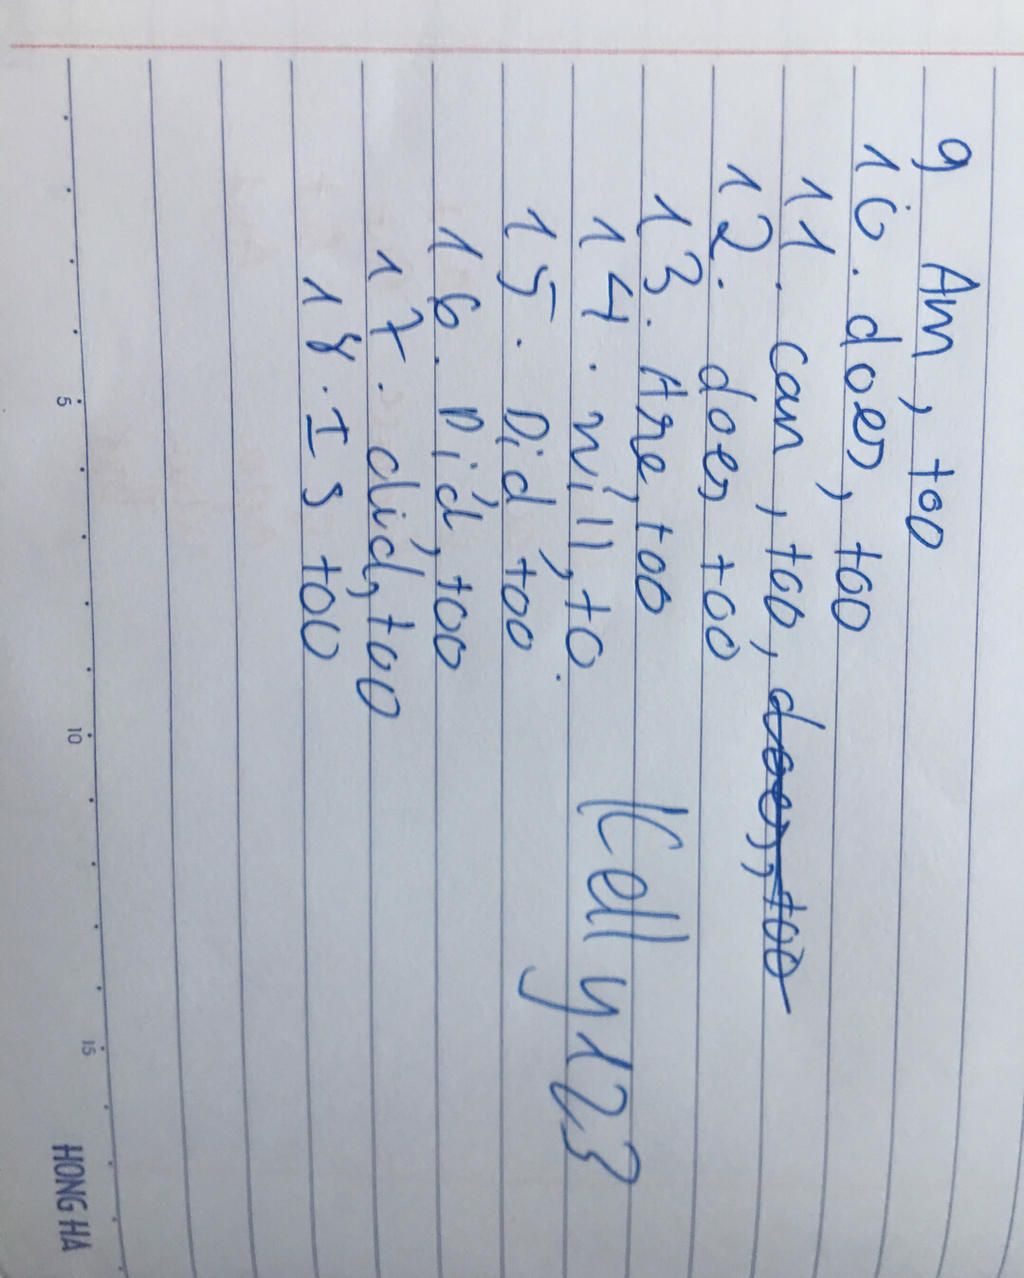 9 Am, too
10. does, too
11. can, too, does, too
12. does too
13. Are, too
14. will, to.
15. Did, too
16. Did, too
17. did, too
18. Is too
Kelly123
5
10
15
HONG HA